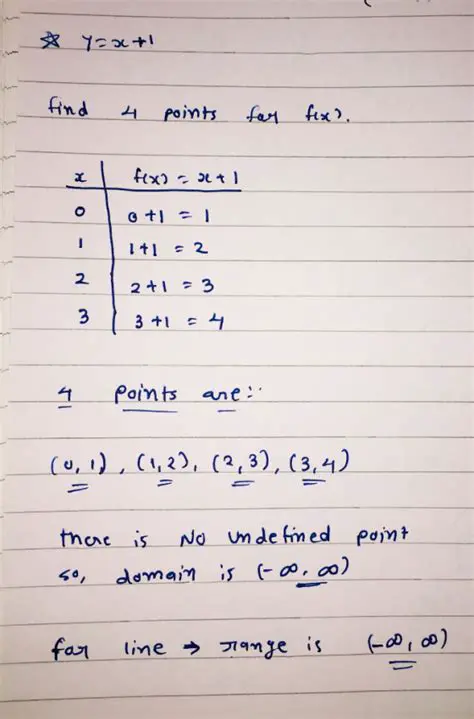 ☆ y=x+1
find 4 points for f(x).
x f(x) = x+1
0 0+1 = 1
1 1+1 = 2
2 2+1 = 3
3 3+1 = 4
4 points are:-
(0,1), (1,2), (2,3), (3,4)
there is No undefined point
so, domain is (-∞, ∞)
for line → range is (-∞, ∞)